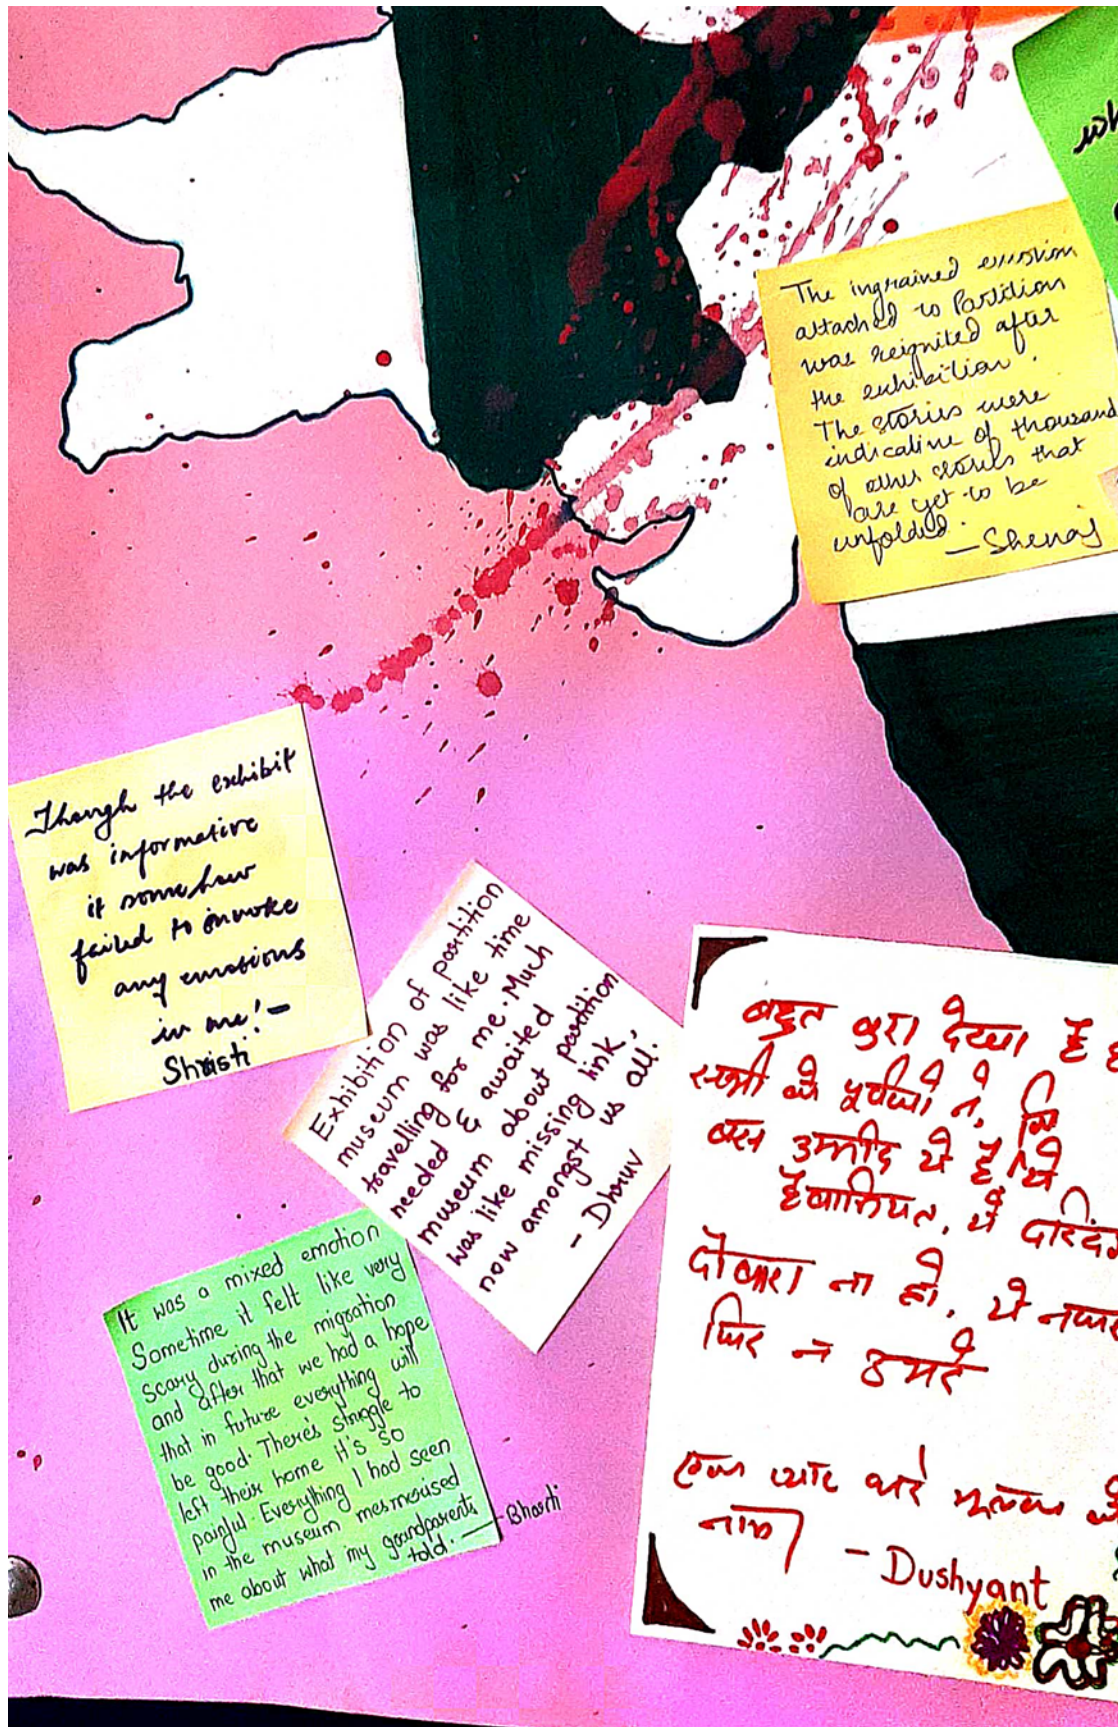 wh
The ingrained emotion
attached to Partition
was reignited after
the exhibition.
The stories were
indicative of thousand
of other stories that
are yet to be
unfolded.
- Shenaj
Though the exhibit
was informative
it somehow
failed to invoke
any emotions
in me! -
Shristi
Exhibition of partition
museum was like time
travelling for me. Much
needed & awaited
museum about partition
was like missing link,
now amongst us all.
- Dhruv
It was a mixed emotion
Sometime it felt like very
scary during the migration
and after that we had a hope
that in future everything will
be good. There's struggle to
left their home it's so
painful. Everything I had seen
in the museum mesmerised
me about what my grandparents
told. - Bharti
बहुत बुरा देखा है
सभी के पूर्वजो ने,
बस उम्मीद ये है, ये
हैवानियत, ये
दोबारा ना हो, ये
फिर न उमड़े
नाम
- Dushyant